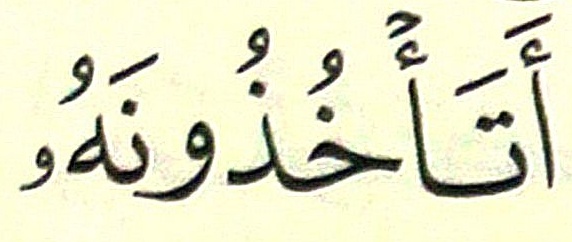 أَتَأۡخُذُونَهُۥ